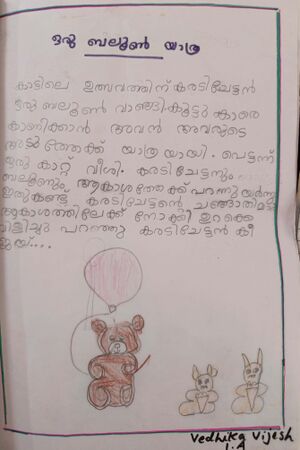 ഒരു ബലൂൺ യാത്ര
കാട്ടിലെ ഉത്സവത്തിന് കരടിചേട്ടൻ
ഒരു ബലൂൺ വാങ്ങി കൂട്ടു കാരെ
കാണിക്കാൻ അവൻ അവരുടെ
അടുത്തേക്ക് യാത്ര യായി. പെട്ടന്ന്
ഒരു കാറ്റ് വീശി. കരടിചേട്ടനും
ബലൂണും ആകാശത്തേക്ക് പറന്നു യർന്നു
ഇതുകണ്ട കരടിചേട്ടന്റെ ചങ്ങാതിമാർ
ആകാശത്തിലേക്ക് നോക്കി ഉറക്കെ
വിളിച്ചു പറഞ്ഞു കരടിചേട്ടൻ കീ
ജയ്....
Vedhika Vijesh
1.A